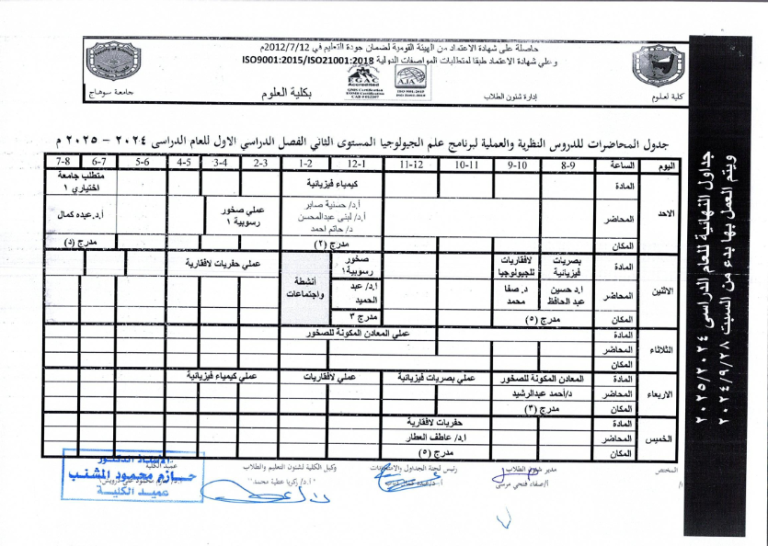 حاصلة على شهادة الاعتماد من الهيئة القومية لضمان جودة التعليم في 2012/7/12م
وعلى شهادة الاعتماد طبقا لمتطلبات المواصفات الدولية ISO9001:2015/ISO21001:2018
كلية العلوم
إدارة شئون الطلاب
EGAC
AJA
بكلية العلوم
جامعة سوهاج
جدول المحاضرات للدروس النظرية والعملية لبرنامج علم الجيولوجيا المستوى الثاني الفصل الدراسي الاول للعام الدراسى ٢٠٢٤ – ٢٠٢٥ م
اليوم الساعة 8-9 9-10 10-11 11-12 12-1 1-2 2-3 3-4 4-5 5-6 6-7 7-8
الاحد
المادة كيمياء فيزيائية عملي صخور رسوبية ١ متطلب جامعة اختياري ١
المحاضر أ.د/ حسنية صابر أ.د/ لبنى عبدالمحسن د/ حاتم احمد أ.د.عبده كمال
المكان مدرج (٢) مدرج (د)
الاثنين
المادة بصريات فيزيائية لافقاريات للجيولوجيا صخور رسوبية١ أنشطة واجتماعات عملي حفريات لافقارية
المحاضر أ.د حسين عبد الحافظ د. صفا محمد أ.د/ عبد الحميد
المكان مدرج (٥) مدرج ٣
الثلاثاء
المادة عملي المعادن المكونة للصخور
المحاضر
المكان
الاربعاء
المادة المعادن المكونة للصخور عملي بصريات فيزيائية عملي لافقاريات عملي كيمياء فيزيائية
المحاضر د/أحمد عبدالرشيد
المكان مدرج (٢)
الخميس
المادة حفريات لافقارية
المحاضر أ.د/ عاطف العطار
المكان مدرج (٥)
المختص
مدير شئون الطلاب
أ/صفاء فتحي مرسى
رئيس لجنة الجداول
وكيل الكلية لشئون التعليم والطلاب
أ.د/ زكريا عطية محمد
عميد الكلية
الاستاذ الدكتور
حازم محمود المشنب
عميد الكلية
جداول النهائية للعام الدراسى ٢٠٢٥/٢٠٢٤
ويتم العمل بها بدء من السبت ٢٠٢٤/٩/٢٨